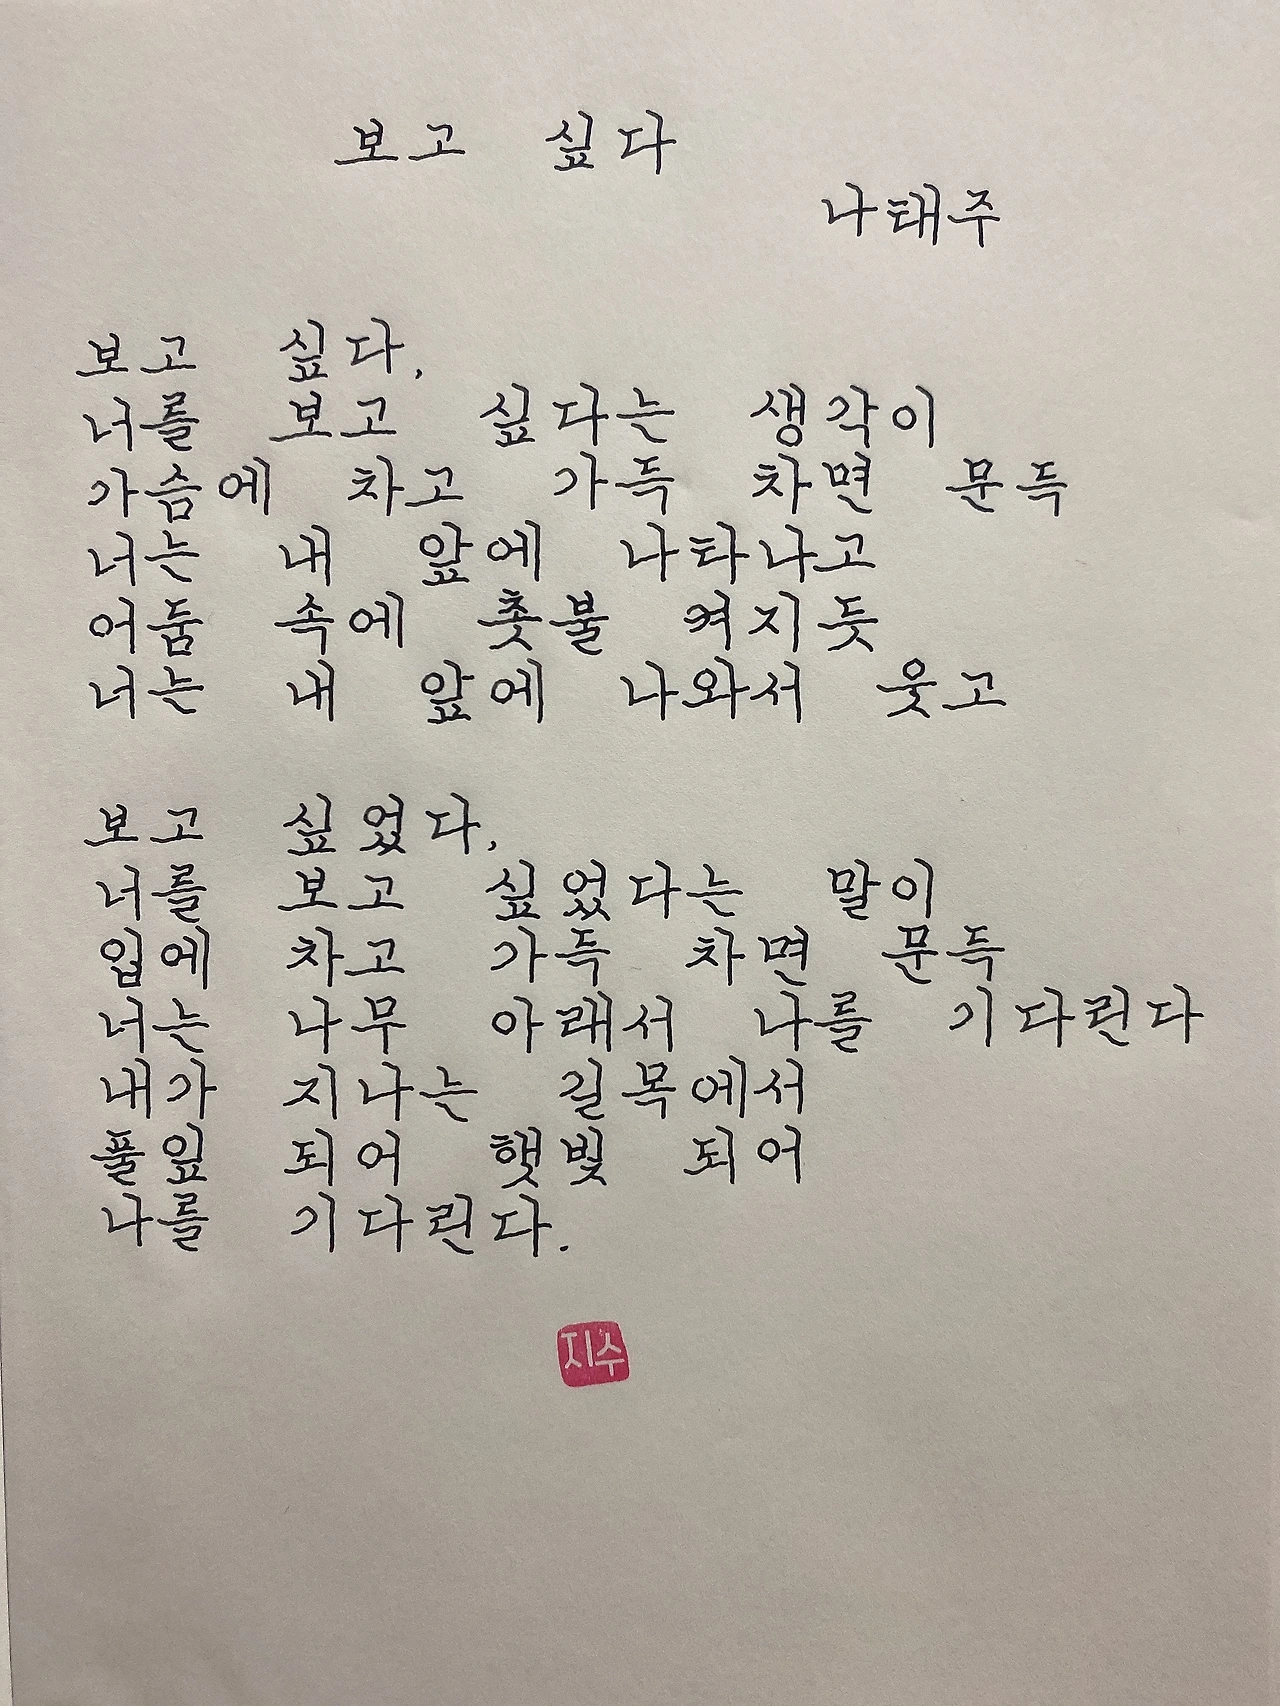 보고 싶다
나태주
보고 싶다,
너를 보고 싶다는 생각이
가슴에 차고 가득 차면 문득
너는 내 앞에 나타나고
어둠 속에 촛불 켜지듯
너는 내 앞에 나와서 웃고
보고 싶었다,
너를 보고 싶었다는 말이
입에 차고 가득 차면 문득
너는 나무 아래서 나를 기다린다
내가 지나는 길목에서
풀잎 되어 햇빛 되어
나를 기다린다.
지수